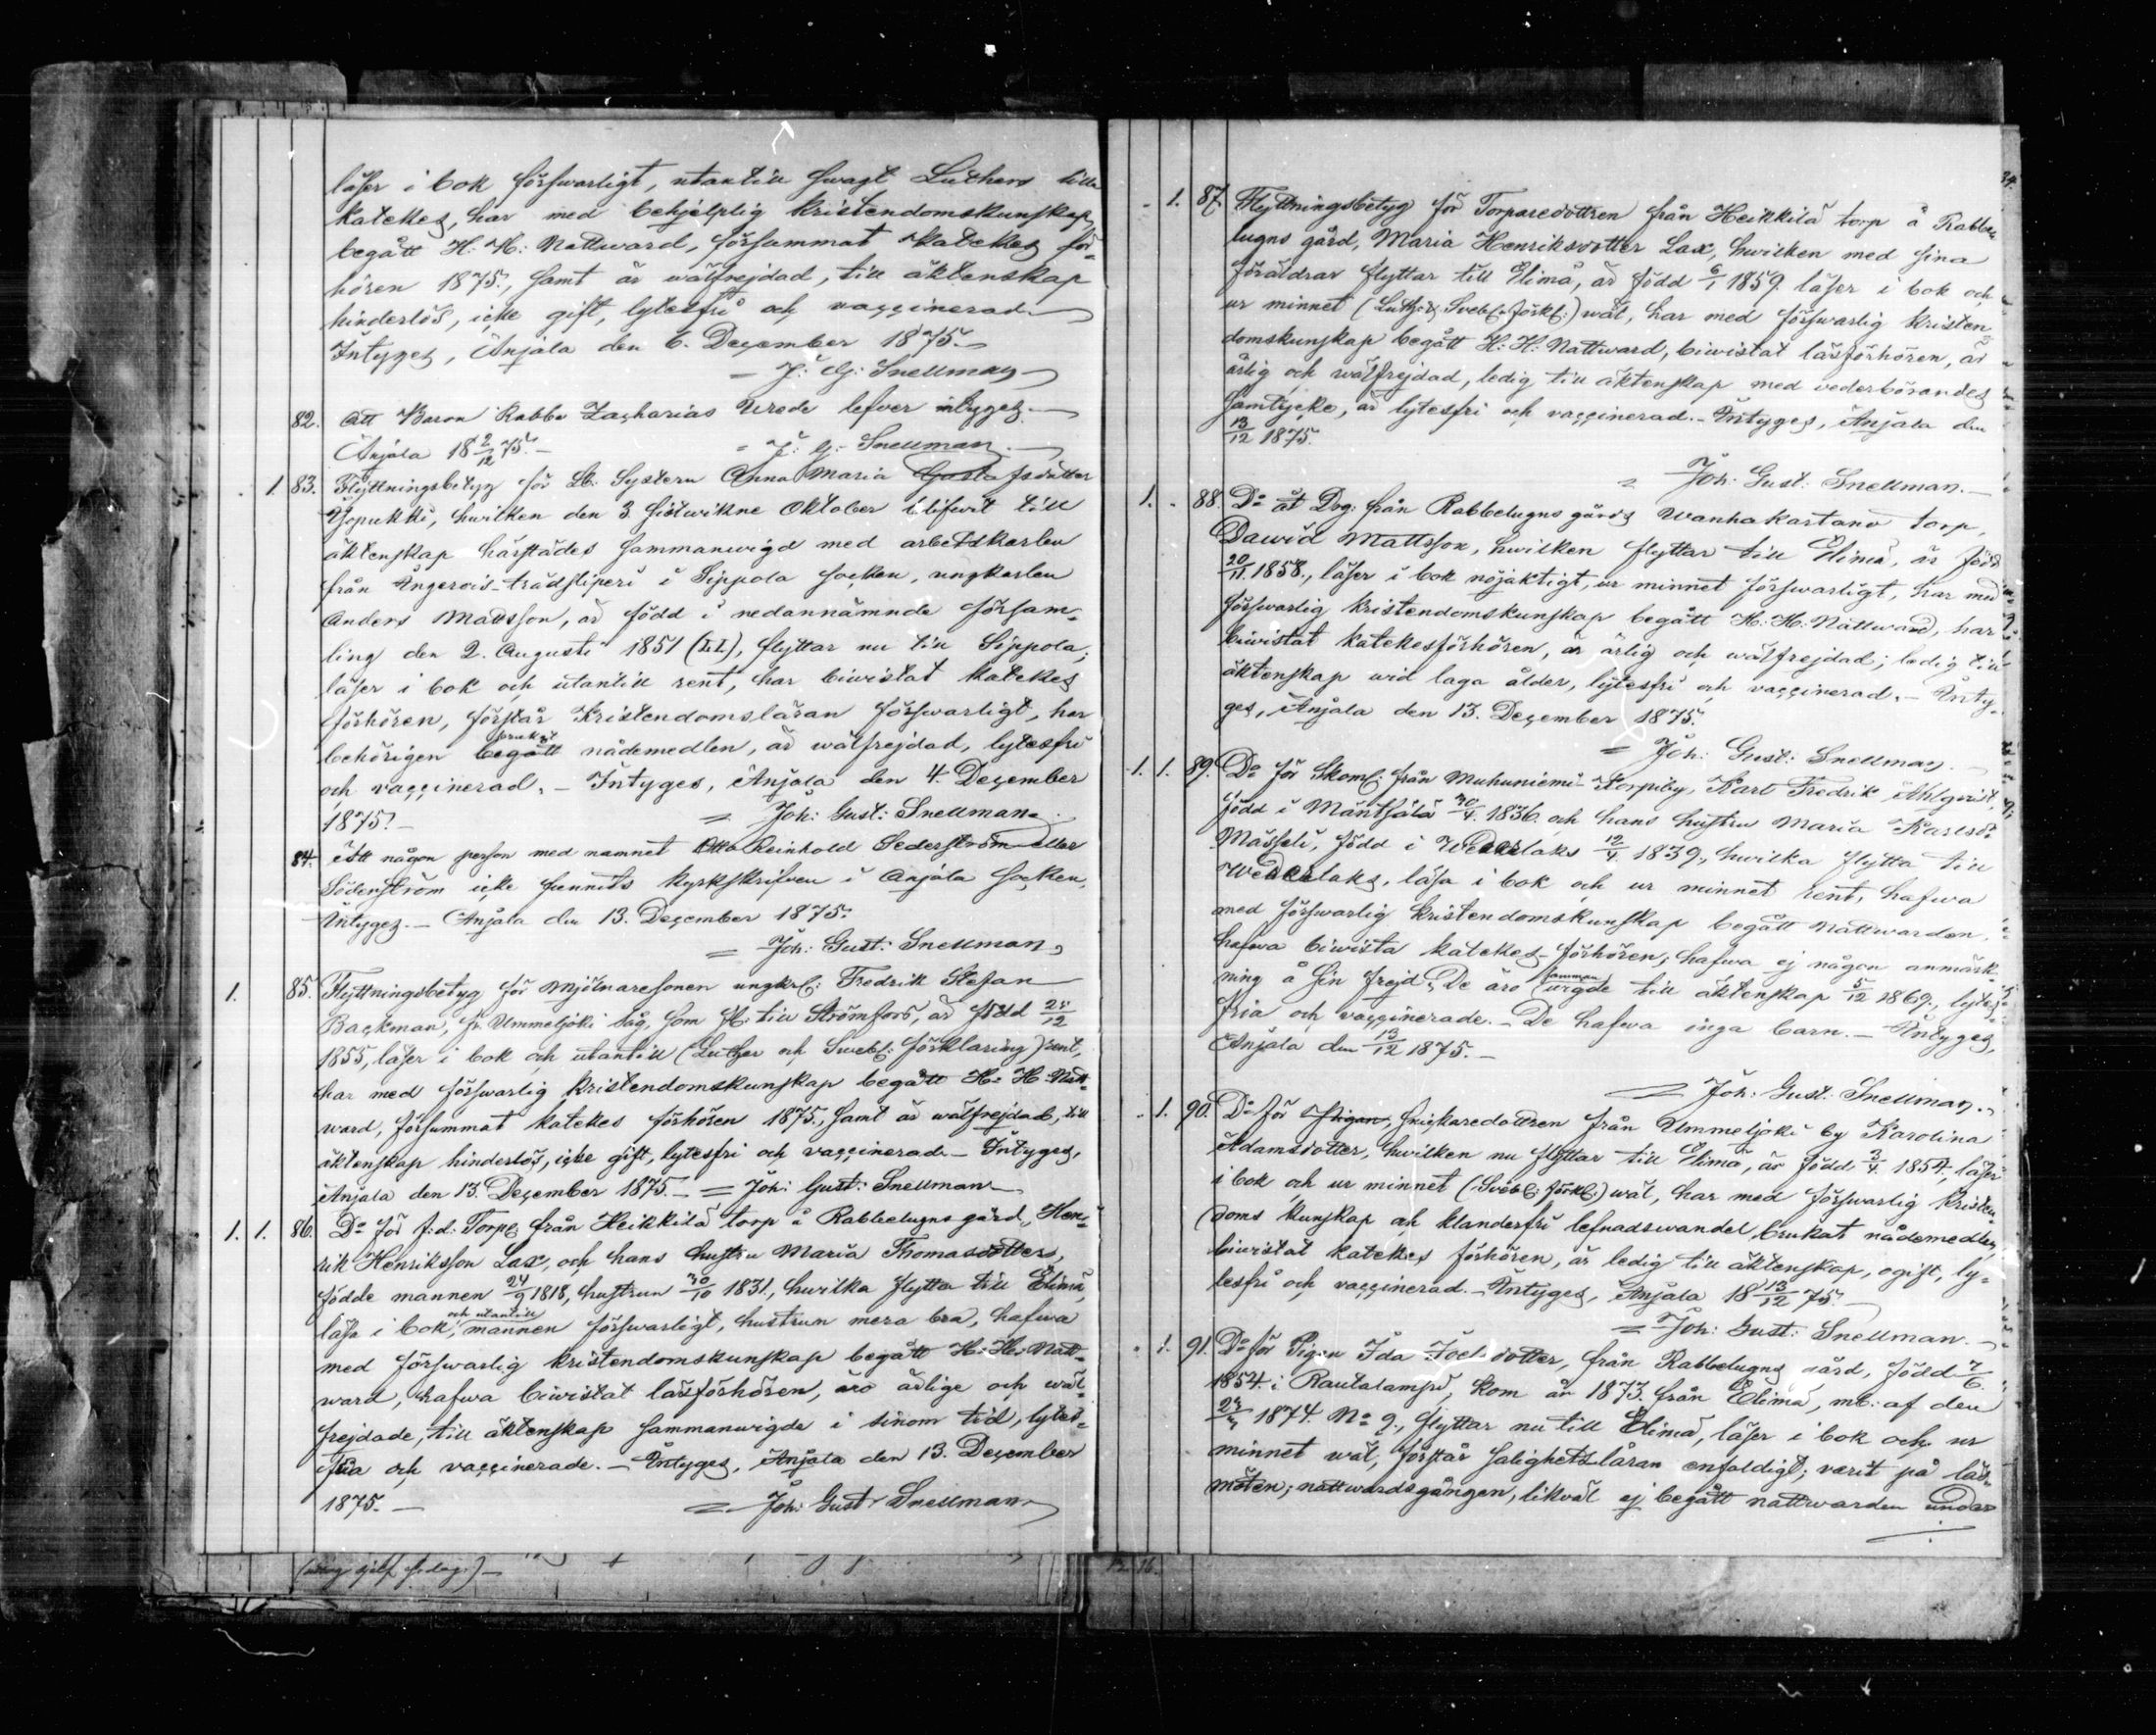 läser i bok försvarligt, utantill svagt Luthers lilla
katekes, har med behjelplig kristendomskunskap
begått H. H. Nattvard, försummat katekes för-
hören 1875., samt är wälfrejdad, till äktenskap
hinderlös, icke gift, lytesfri och vaccinerad.
Intyges, Anjala den 6. December 1875.
= J: G: Snellman
82. Att Baron Rabbe Zacharias Wrede lefver intyges. —
Anjala 18 2/12 75. —
= J: G: Snellman. —
1. 83. Flyttningsbetyg för Anna Maria Gustafsdotter
Yöpukki, hwilken den 3 sistwikne Oktober blifwit till
äktenskap härstädes sammanwigd med arbetskarlen
från Ingerois-trädsliperi i Sippola socken, ungkarlen
Anders Mattsson, är född i nedannämnde försam-
ling den 2. Augusti 1851 (LI), flyttar nu till Sippola;
läser i bok och utantill rent, har biwistat katekes
förhören, förstår Kristendomsläran förswarligt, har
brukat
behörigen begått nådemedlen, är wälfrejdad, lytesfri
och vaccinerad. — Intyges, Anjala den 4. December
1875. — = Joh: Gust: Snellman.
84. Att någon person med namnet Otto Reinhold Sederström eller
Söderström icke funnits kyrkskrifven i Anjala socken,
Intyges. — Anjala den 13. December 1875.
= Joh: Gust: Snellman
1. 85. Flyttningsbetyg för Mjölnaresonen ungkrl: Fredrik Stefan
Backman, fr. Ummeljoki såg, som fl: till Strömfors, är född 25/12
1855, läser i bok och utantill (Luther och Swebl: förklaring) rent,
har med förswarlig kristendomskunskap begått H: H: Natt-
ward, försummat katekes förhören 1875., samt är wälfrejdad, till
äktenskap hinderlös, icke gift, lytesfri och vaccinerad — Intyges,
Anjala den 13. December 1875. — = Joh: Gust: Snellman
1. 1. 86. Do för f:d: Torp: från Heikkilä torp å Rabbelugns gård, Hen-
rik Henriksson Lax, och hans hustru Maria Thomasdotter,
födde mannen 24/9 1818, hustrun 30/10 1831, hwilka flytta till Elimä,
och utantill
läsa i bok, mannen förswarligt, hustrun mera bra, hafwa
med förswarlig kristendomskunskap begått H: H: Natt-
ward, hafwa biwistat läsförhören, äro ärlige och wäl-
frejdade, till äktenskap sammanwigde i sinom tid, lytes-
fria och vaccinerade. — Intyges, Anjala den 13. December
1875. — = Joh: Gust: Snellman
(
34.
1. 87. Flyttningsbetyg för Torparedottren från Heikkilä torp å Rabbe-
lugns gård, Maria Henriksdotter Lax, hwilken med sina
föräldrar flyttar till Elimä, är född 6/1 1859. läser i bok och
ur minnet (Luth: & Svebl: Förkl:) wäl, har med förswarlig kristen-
domskunskap begått H: H: Nattward, biwistat läsförhören, är
ärlig och wälfrejdad, ledig till äktenskap med vederbörandes
samtycke, är lytesfri och vaccinerad. — Intyges, Anjala den
13/12 1875.
= Joh: Gust: Snellman. —
1. 88. Do åt Drg: från Rabbelugns gårds Wanhakartano torp,
Dawid Mattsson, hwilken flyttar till Elimä, är född
20/11 1858., läser i bok nöjaktigt, ur minnet förswarligt, har med
förswarlig kristendomskunskap begått H: H: Nattward, har
biwistat katekesförhören, är ärlig och wälfrejdad; ledig till
äktenskap wid laga ålder, lytesfri och vaccinerad. — Inty-
ges, Anjala den 13. December 1875.
= Joh: Gust: Snellman.
1. 1. 89. Do för Skom: från Muhuniemi-Korpiby, Karl Fredrik Ahlqvist,
född i Mäntsälä 30/4. 1836. och hans hustru Maria Karlsdr
Mässeli, född i Wederlaks 12/4. 1839., hwilka flytta till
Wederlaks, läsa i bok och ur minnet rent, hafwa
med förswarlig kristendomskunskap begått nattwarden,
hafwa biwista katekes-förhören, hafwa ej någon anmärk-
samman
ning å sin frejd. De äro wigde till äktenskap 5/12 1869., lytes-
fria och vaccinerade. — De hafwa inga barn. — Intyges,
Anjala den 13/12 1875. —
= Joh: Gust: Snellman.
1. 90. Do för Pigan, snickaredottren från Ummeljoki by Karolina
Adamsdotter, hwilken nu flyttar till Elimä, är född 3/4. 1854., läser
i bok och ur minnet (Svebl: Förkl:) wäl, har med förswarlig kristen-
doms kunskap och klanderfri lefnadswandel brukat nådemedlen,
biwistat katekes förhören, är ledig till äktenskap, ogift, ly-
tesfri och vaccinerad. — Intyges, Anjala 18 13/12 75.
= Joh: Gust: Snellman. —
1. 91. Do för Pigan Ida Joelsdotter, från Rabbelugns gård, född 7/6.
1854. i Rautalampi, kom år 1873. från Elimä, mb: af den
1874. No 9., flyttar nu till Elimä, läser i bok och ur
minnet wäl, förstår salighetsläran enfaldigt; varit på läs-
möten; nattwardsgången, likväl ej begått nattwarden under